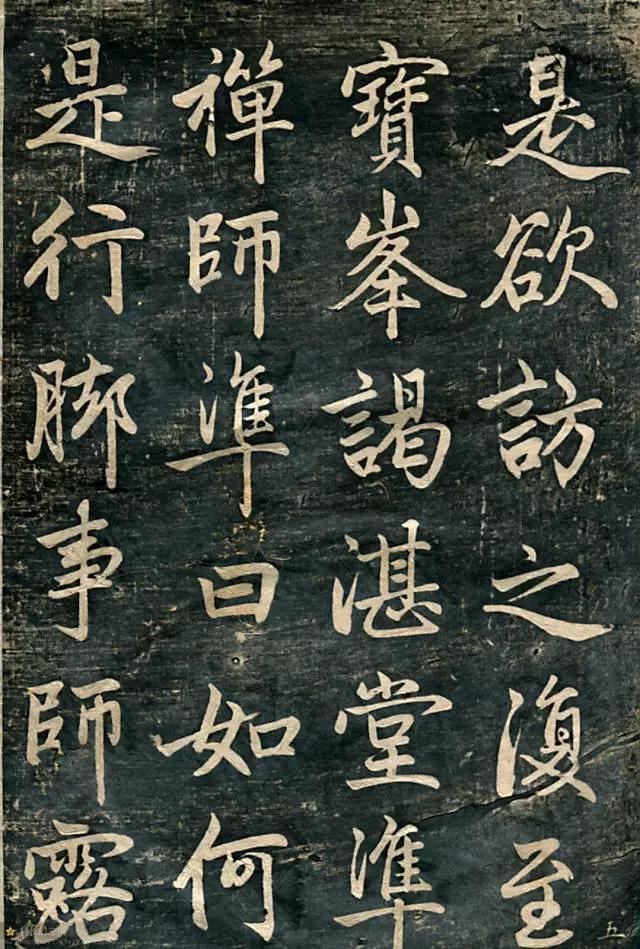 是欲訪之復至
寶峯謁湛堂準
禪師準曰如何
是行脚事師露
五